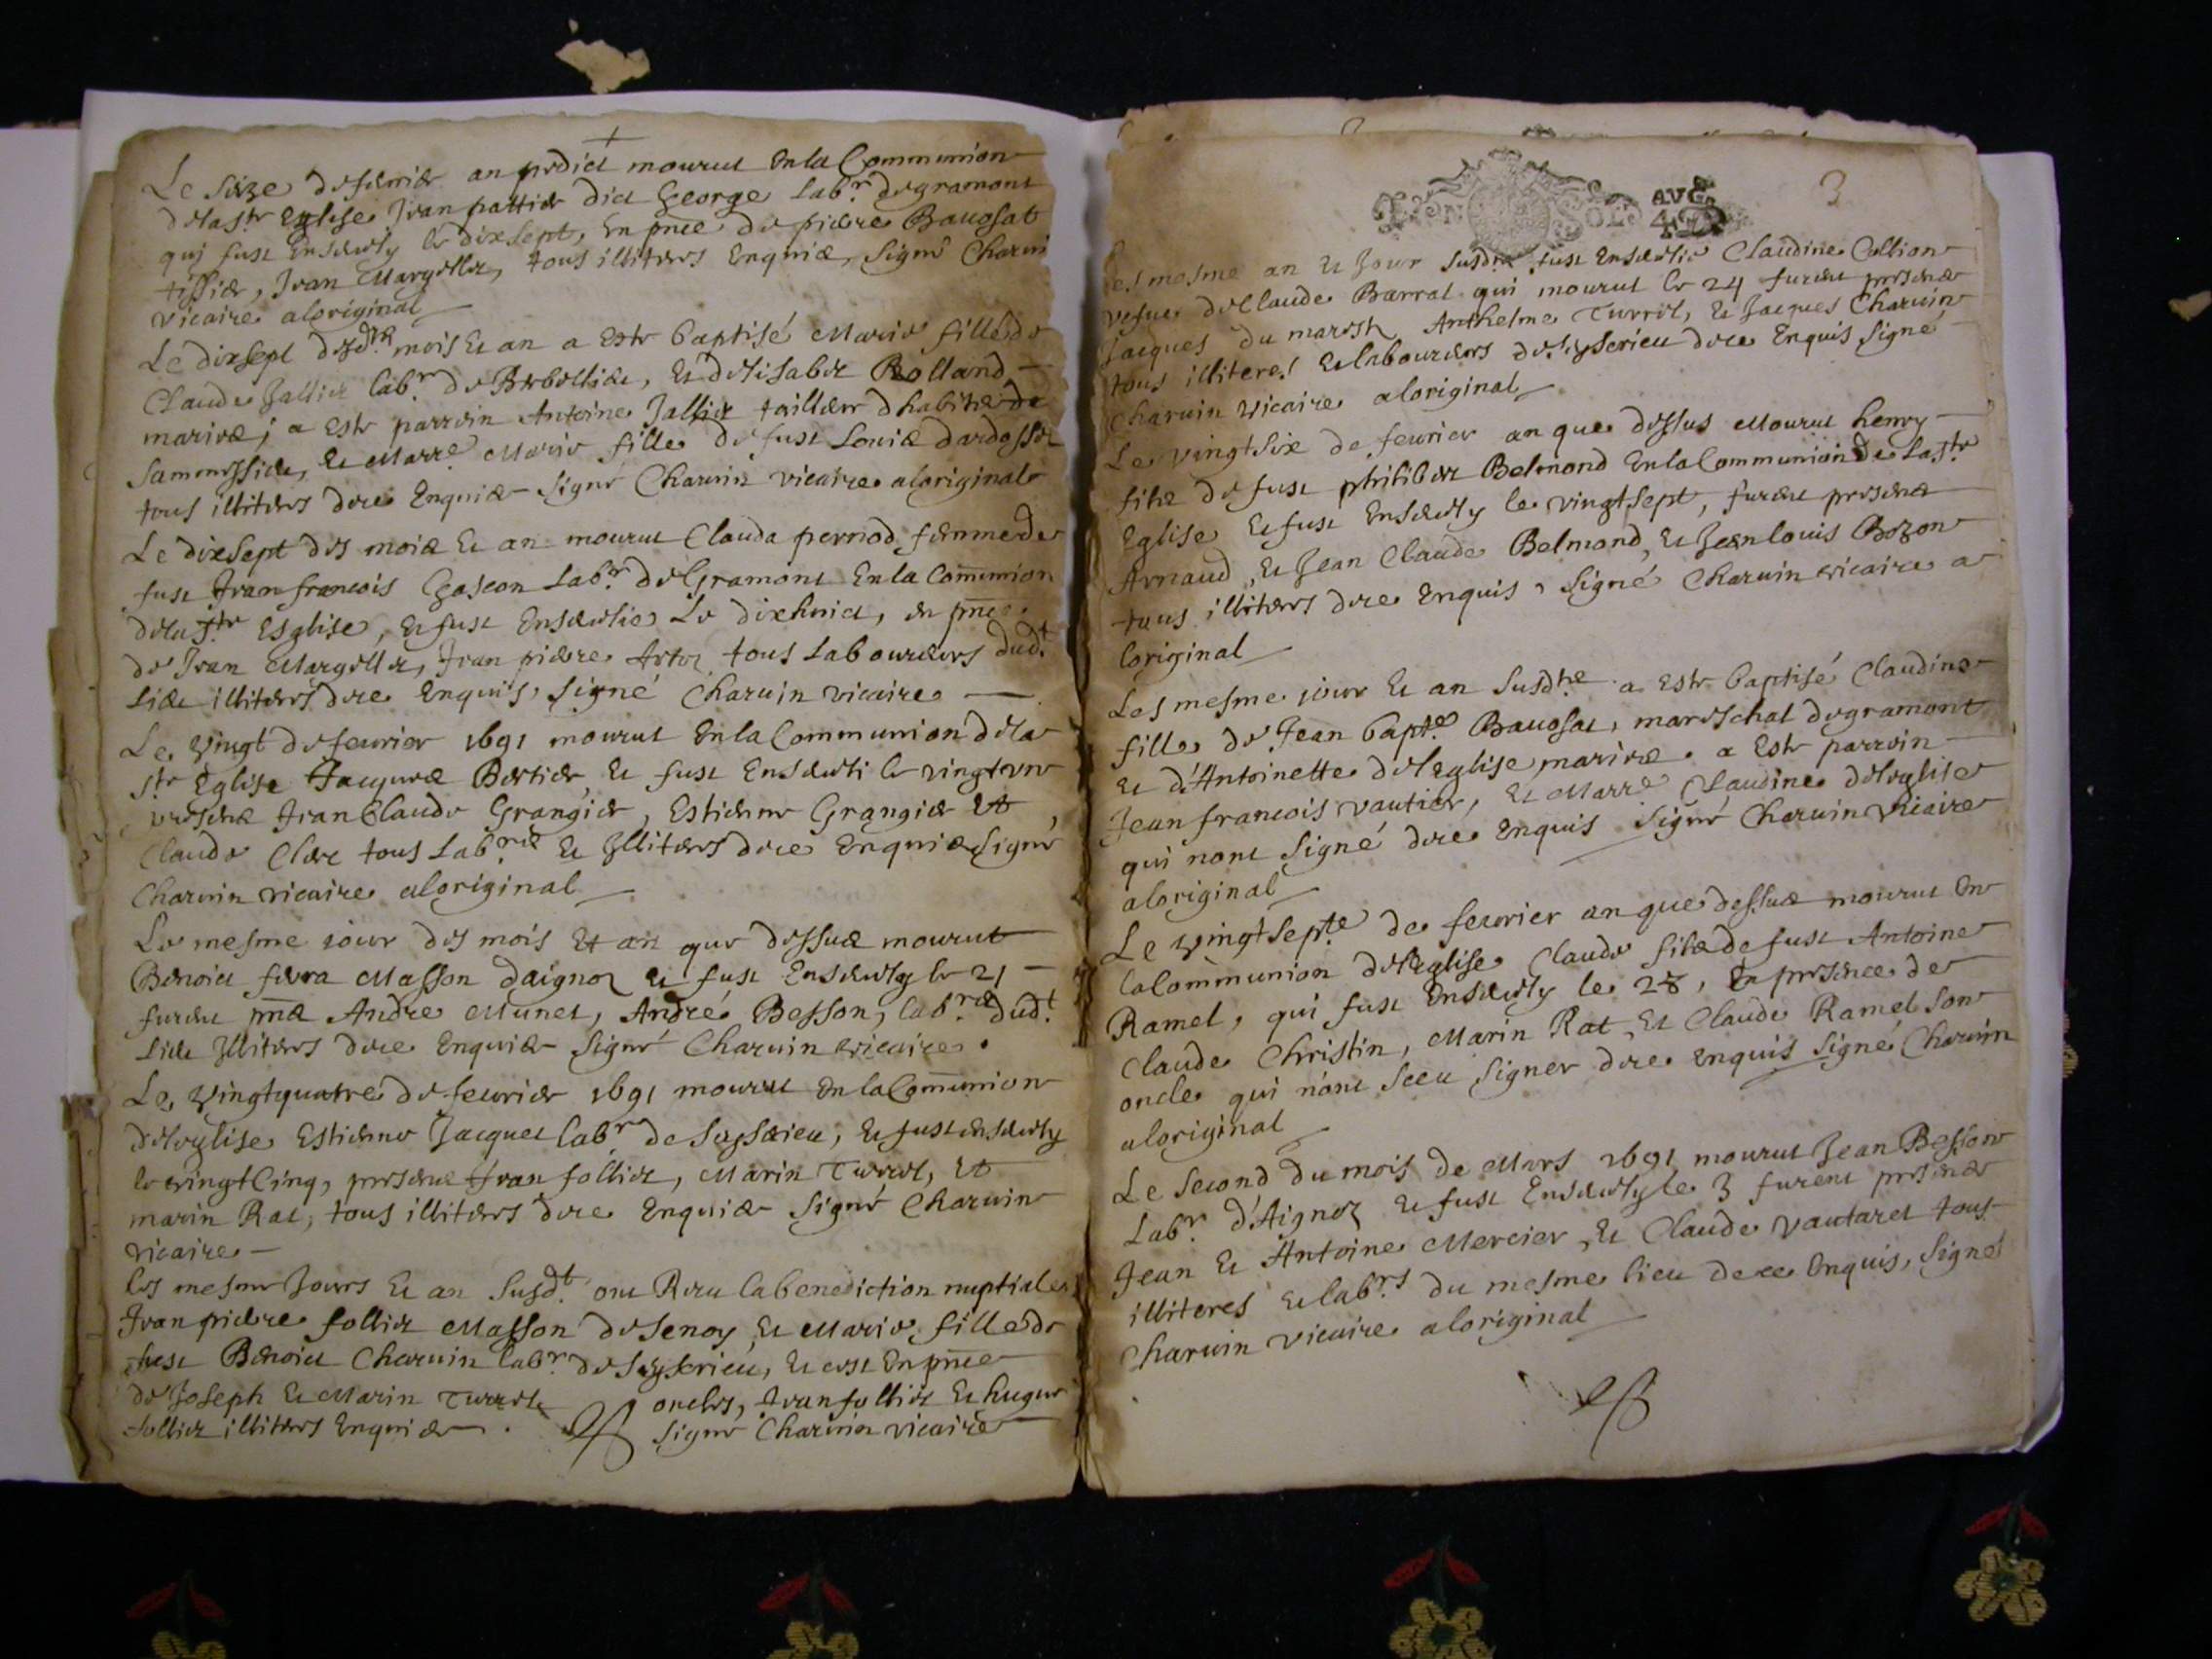 Le seize de feuvrier an predict mourut en la Communion
de la ste Eglise Jean pattier dict George labr de gramont
qui fust ensevely le dixsept, en pnce de pierre Bauosat
tissier, Jean Margeller, tous illiteres enquis, signé Charui
vicaire a loriginal
Le dixsept desdts mois et an a este baptisé Marie fille de
Claude Jallier labr de et de Rolland
mariés, a este parrein Antoine Jallier tailleur dhabits de
et Marre Marie fille de fust
tous illiteres de ce enquis signé Charuin vicaire a loriginal
Le dixsept des mois et an mourut Clauda pernod femme de
fust Jean francois Gascon labr de Gramont en la Com̃union
de la ste Esglise, et fust ensevelie le dixhuict, en pnce
de Jean Margeller, Jean pierre tous laboureurs dudt
lieu illiteres de ce enquis, signé Charuin vicaire
Le vingt de feuvrier 1691 mourut en la Communion de la
ste Eglise Jacques Bertier, et fust enseveli le vingt vn
presens Jean Claude Grangier, Estienne Grangier et
Claude Clerc tous labrs et Illiteres de ce enquis signé
Charuin vicaire a loriginal
Le mesme iour des mois et an que dessus mourut
Benoict Masson daignoz et fust ensevely le 21
furent pns Andre Munet, André Besson, labrs dudt
lieu Illiteres de ce enquis signé Charuin vicaire.
Le vingtquatre de feuvrier 1691 mourut en la Com̃union
de leglise Estienne Jacquet labr de et fust ensevely
le vingt cinq, presens Jean follier, Marin Turrel, et
marin Rat, tous illiteres de ce enquis signé Charuin
vicaire
les mesme Jours et an susdt ont Receu la benediction nuptiale
Jean pierre follier Masson de Senoy et Marie fille de
Benoict Charuin labr de Seyserieu, et en pnce
de Joseph et Marin Turrel oncles, Jean follier et hugue
follier illiteres enquis signé Charuin vicaire
3
AVG
4 D
Les mesme an et Jour susdts fust ensevelie Claudine Collion
vefue de Claude Barral qui mourut le 24 furent presens
Jacques du maresh Anthelme Turrel, et Jacques Charuin
tous illiteres et laboureurs de Seyserieu de ce enquis signé
Charuin vicaire a loriginal
Le vingt six de feurier an que dessus Mourut henry
fils de fust philibert Belmond en la Communion de la ste
Eglise et fust ensevely le vingt sept, furent presens
Arnaud, et Jean Claude Belmond, et Jean louis Bozon
tous illiteres de ce enquis, signé Charuin vicaire a
loriginal
Les mesme iour et an susdts a este baptisé Claudine
fille de Jean bapte Bauosat, mareschal de gramont
et d'Antoinette de leglise mariés. a este parrein
Jean francois vautier, et Marre Claudine de leglise
qui nont signé de ce enquis signé Charuin vicaire
a loriginal
Le vingt septe de feurier an que dessus mourut en
la Com̃union de leglise Claude fils de fust Antoine
Ramel, qui fust ensevely le 28, en presence de
Claude Christin, Marin Rat, et Claude Ramel son
oncle qui n'ont sceu signer de ce enquis signé Charuin
a loriginal
Le second du mois de Mars 1691 mourut Jean Besson
labr d'Aignoz et fust ensevely le 3 furent presens
Jean et Antoine Mercier, et Claude vautaret tous
illiteres et labrs du mesme lieu de ce enquis, signé
Charuin vicaire a loriginal